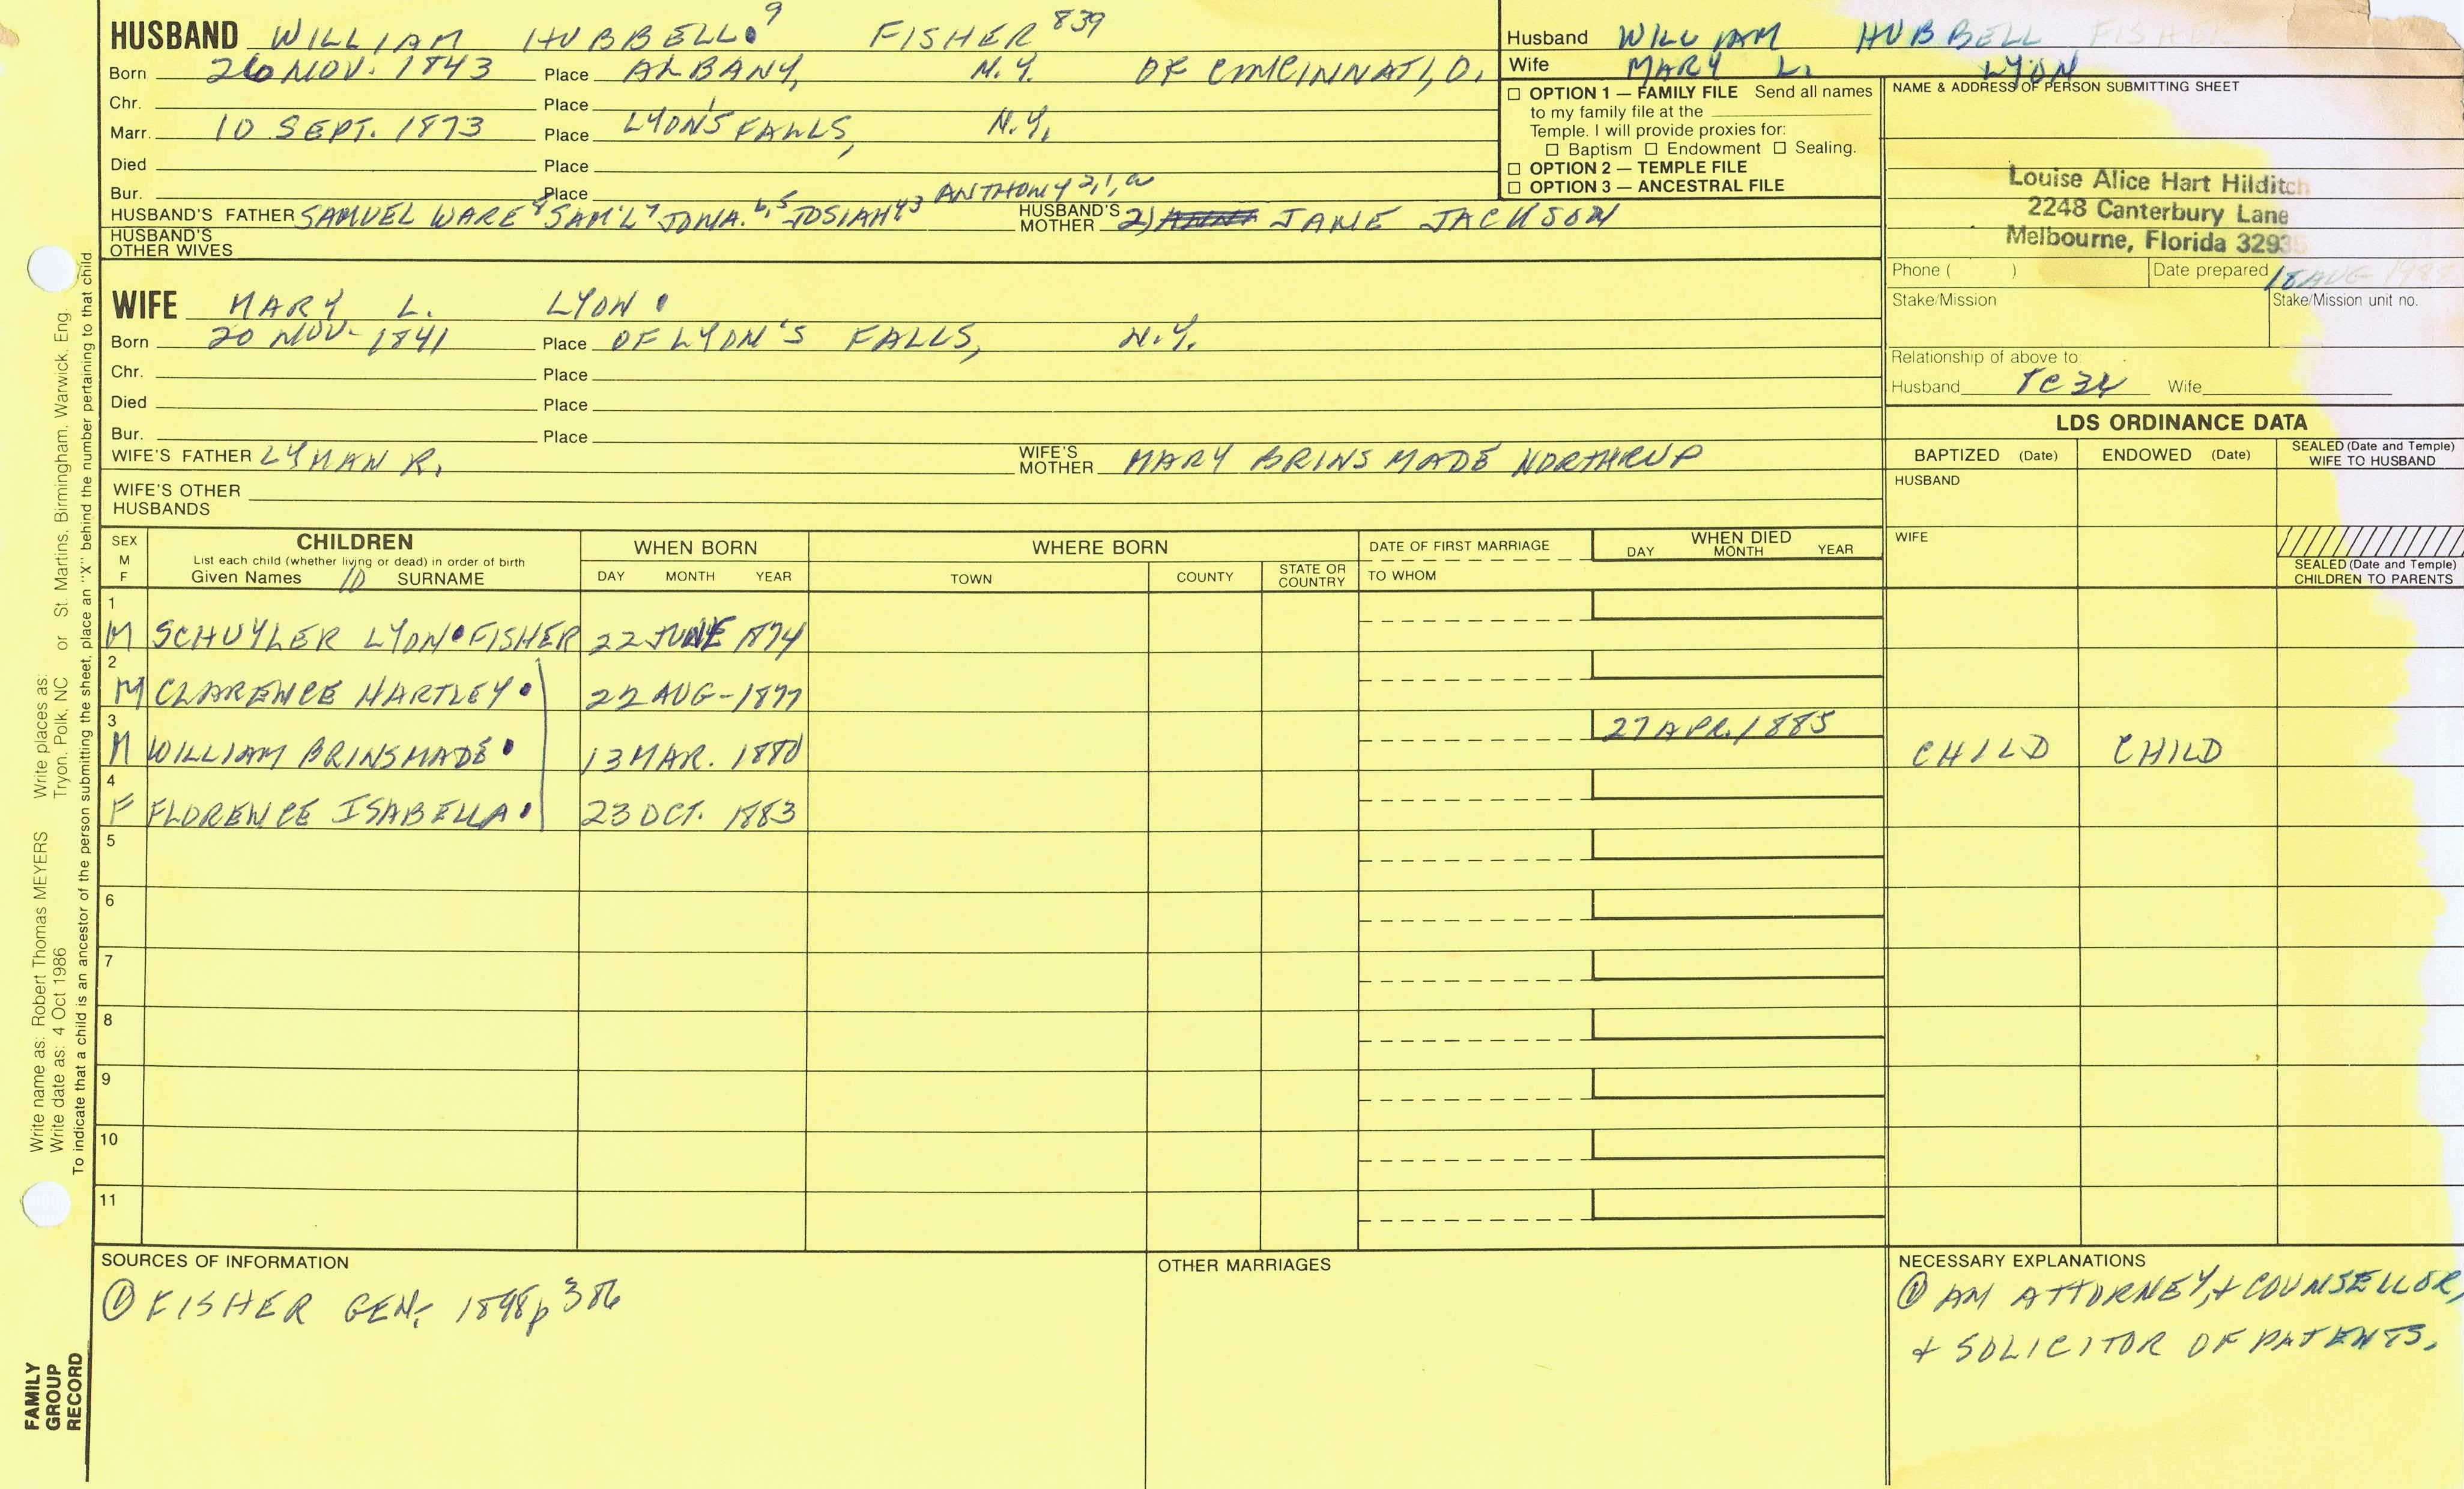 HUSBAND WILLIAM HUBBELL 9 FISHER 839
Born 26 NOV. 1843 Place ALBANY, N.Y. OF CINCINNATI, O.
Chr. Place
Marr. 10 SEPT. 1873 Place LYON'S FALLS, N.Y.
Died Place
Bur. Place
HUSBAND'S FATHER SAMUEL WARE 8 SAM'L 7 JONA. 6,5 JOSIAH 4,3 ANTHONY 2,1,a HUSBAND'S MOTHER 2) JANE JACKSON
HUSBAND'S OTHER WIVES
WIFE MARY L. LYON
Born 20 NOV- 1841 Place OF LYON'S FALLS, N.Y.
Chr. Place
Died Place
Bur. Place
WIFE'S FATHER LYMAN R. WIFE'S MOTHER MARY BRINSMADE NORTHRUP
WIFE'S OTHER HUSBANDS
Husband WILLIAM HUBBELL FISHER
Wife MARY L. LYON
☐ OPTION 1 — FAMILY FILE Send all names
to my family file at the
Temple. I will provide proxies for:
☐ Baptism ☐ Endowment ☐ Sealing.
☐ OPTION 2 — TEMPLE FILE
☐ OPTION 3 — ANCESTRAL FILE
NAME & ADDRESS OF PERSON SUBMITTING SHEET
Louise Alice Hart Hilditch
2248 Canterbury Lane
Melbourne, Florida
Phone ( ) Date prepared 18 AUG
Stake/Mission Stake/Mission unit no.
Relationship of above to:
Husband Wife
LDS ORDINANCE DATA
BAPTIZED (Date) ENDOWED (Date) SEALED (Date and Temple) WIFE TO HUSBAND
HUSBAND
WIFE
SEALED (Date and Temple) CHILDREN TO PARENTS
SEX M F
CHILDREN
List each child (whether living or dead) in order of birth
Given Names 10 SURNAME
WHEN BORN
DAY MONTH YEAR
WHERE BORN
TOWN COUNTY STATE OR COUNTRY
DATE OF FIRST MARRIAGE
TO WHOM
WHEN DIED
DAY MONTH YEAR
1
M SCHUYLER LYON FISHER 22 JUNE 1874
2
M CLARENCE HARTLEY 22 AUG-1877
3 27 APR. 1885
M WILLIAM BRINSMADE 13 MAR. 1880 CHILD CHILD
4
F FLORENCE ISABELLA 23 OCT. 1883
5
6
7
8
9
10
11
SOURCES OF INFORMATION
① FISHER GEN; 1898 p 386
OTHER MARRIAGES
NECESSARY EXPLANATIONS
① AM ATTORNEY, + COUNSELLOR,
+ SOLICITOR OF PATENTS.
Write name as: Robert Thomas MEYERS Write places as: or St. Martins, Birmingham, Warwick, Eng.
Write date as: 4 Oct 1986 Tryon, Polk, NC
To indicate that a child is an ancestor of the person submitting the sheet, place an "X" behind the number pertaining to that child.
FAMILY
GROUP
RECORD